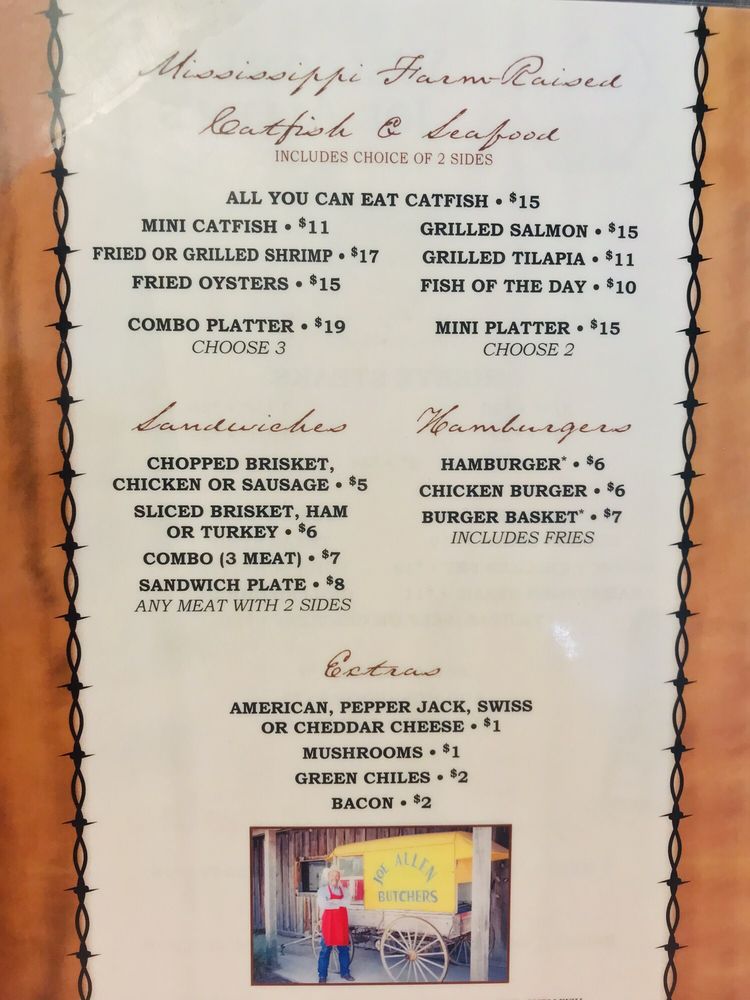 Mississippi Farm-Raised
Catfish & Seafood
INCLUDES CHOICE OF 2 SIDES
ALL YOU CAN EAT CATFISH • $15
MINI CATFISH • $11
FRIED OR GRILLED SHRIMP • $17
FRIED OYSTERS • $15
COMBO PLATTER • $19
CHOOSE 3
GRILLED SALMON • $15
GRILLED TILAPIA • $11
FISH OF THE DAY • $10
MINI PLATTER • $15
CHOOSE 2
Sandwiches
CHOPPED BRISKET,
CHICKEN OR SAUSAGE • $5
SLICED BRISKET, HAM
OR TURKEY • $6
COMBO (3 MEAT) • $7
SANDWICH PLATE • $8
ANY MEAT WITH 2 SIDES
Hamburgers
HAMBURGER* • $6
CHICKEN BURGER • $6
BURGER BASKET* • $7
INCLUDES FRIES
Extras
AMERICAN, PEPPER JACK, SWISS
OR CHEDDAR CHEESE • $1
MUSHROOMS • $1
GREEN CHILES • $2
BACON • $2
JOE ALLEN
BUTCHERS